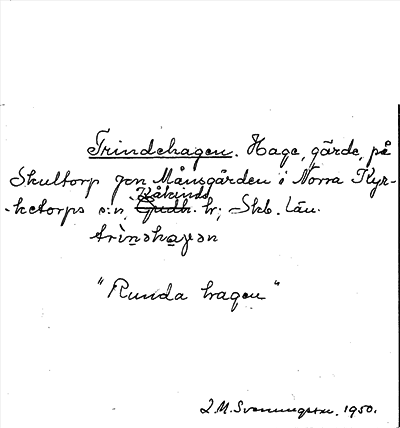 Trindehagen. Hage, gärde, på
Skultorp gen. Månsgården i Norra Kyr-
-ketorps s:n, Kåkinds Gudh. hr; Skb. län.
"Runda hagen"
L.M. Svenungsson. 1950.